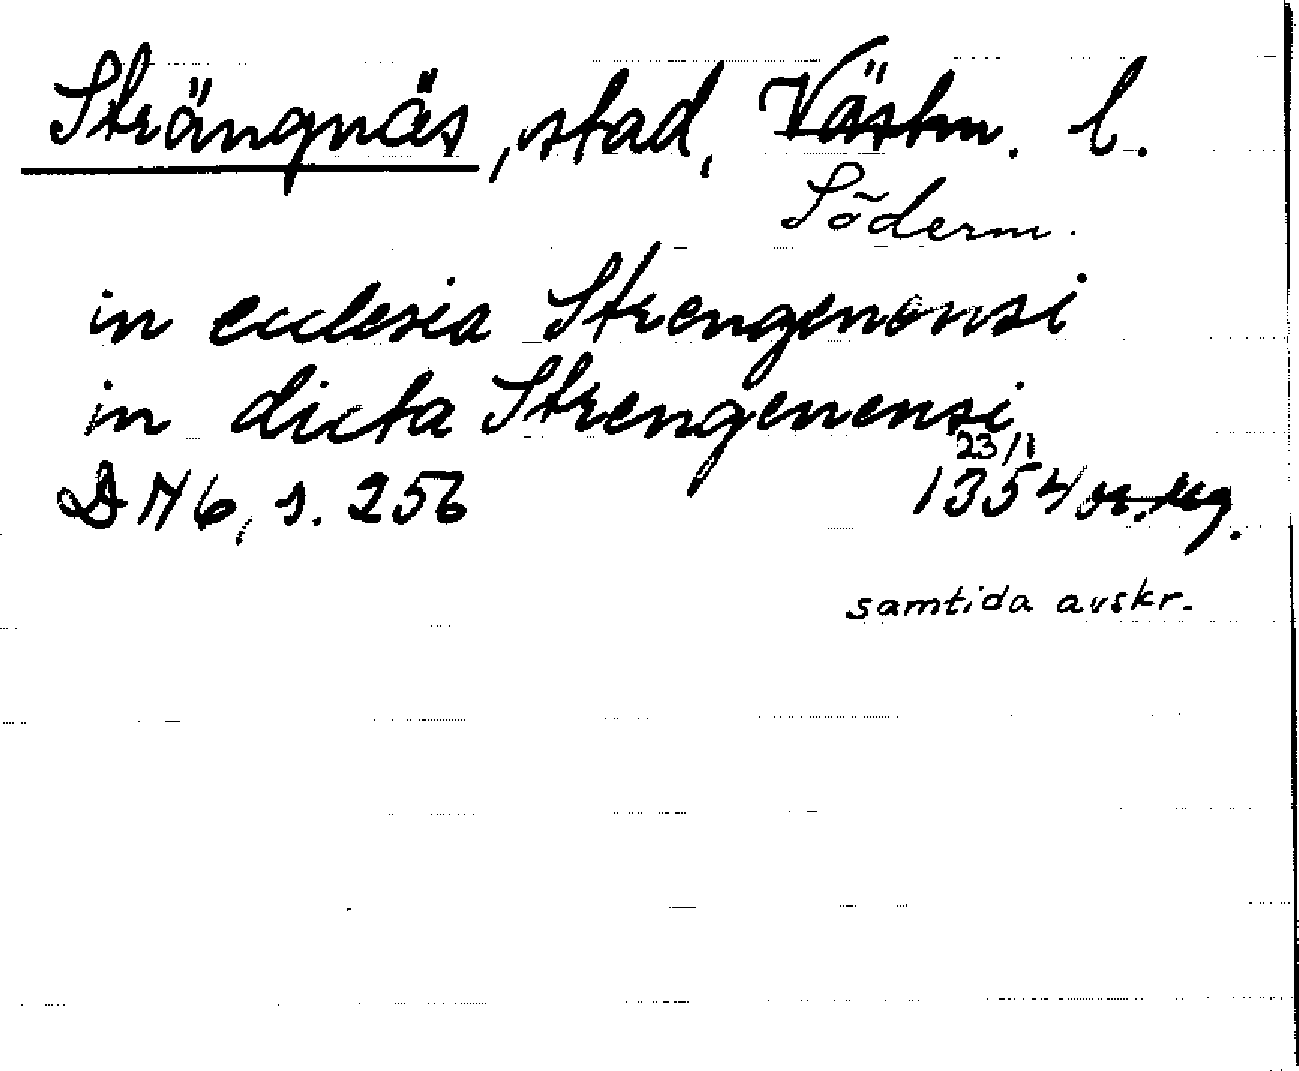 Strängnäs, stad, Västm. l.
Söderm.
in ecclesia Strengenensi
in dicta Strengenensi
23/1
DN 6, s. 256 1354 or. reg.
samtida avskr.